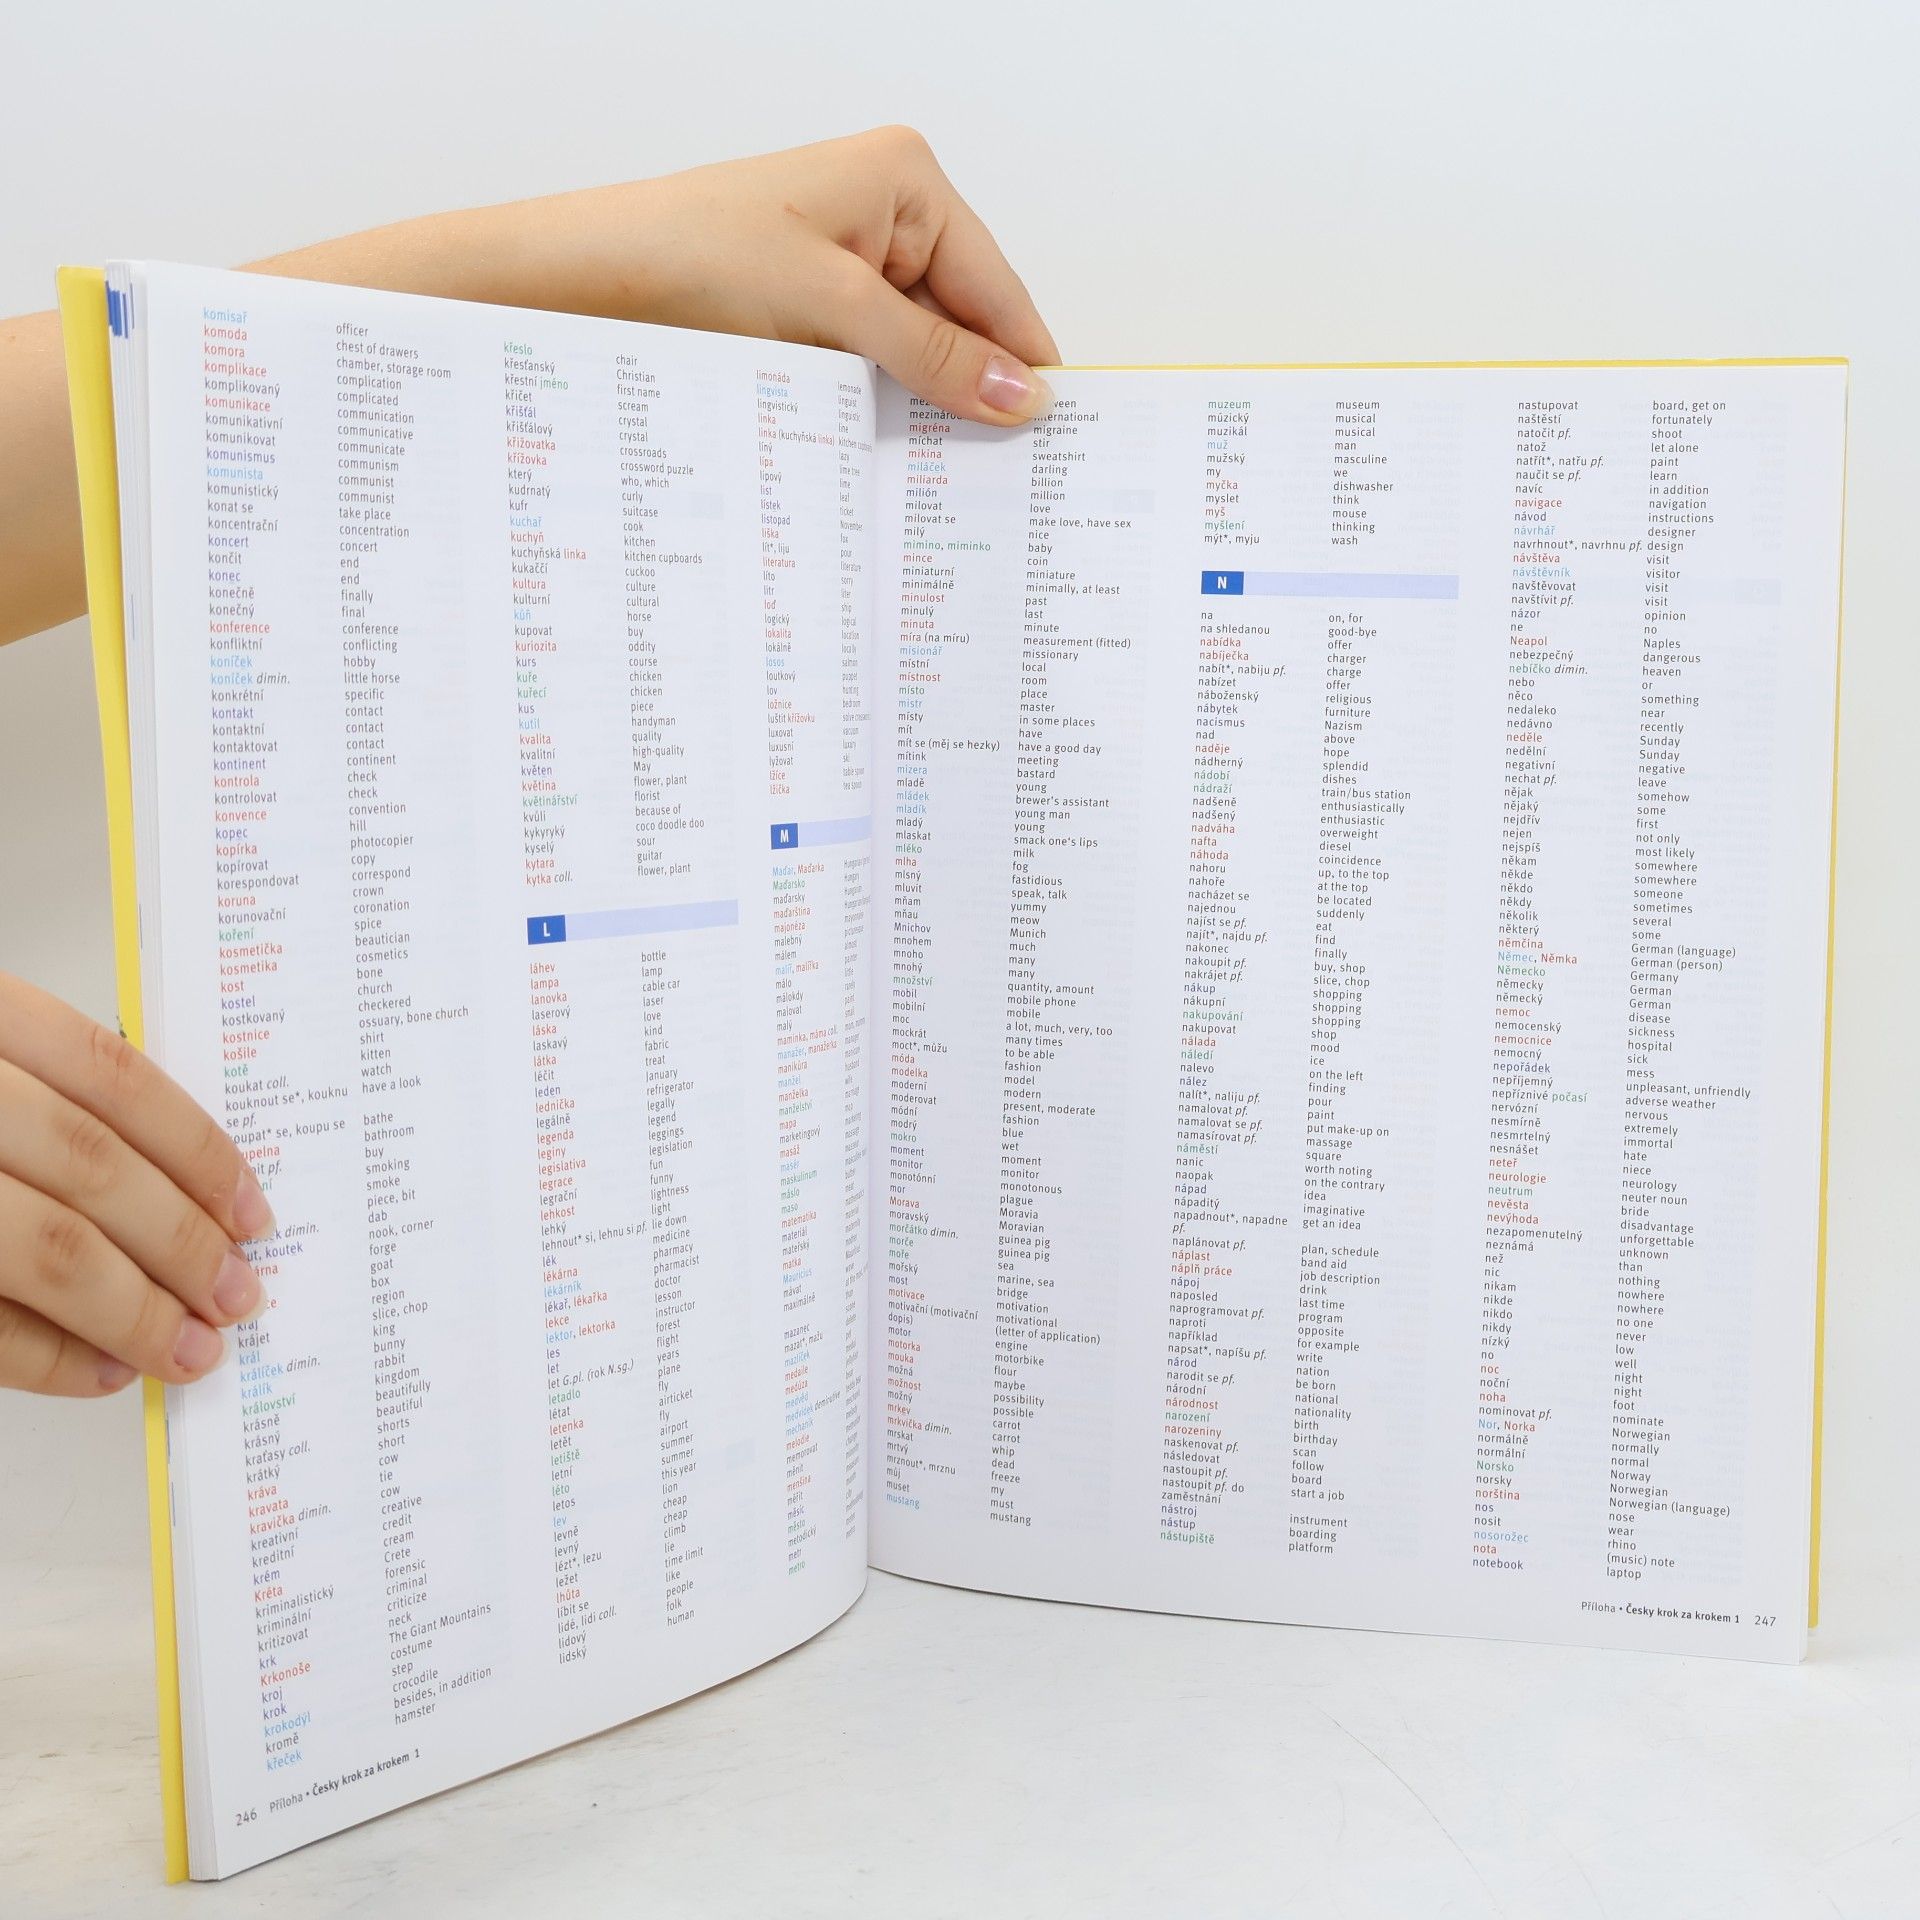 komisař officer
komoda chest of drawers
komora chamber, storage room
komplikace complication
komplikovaný complicated
komunikace communication
komunikativní communicative
komunikovat communicate
komunismus communism
komunista communist
komunistický communist
konat se take place
koncentrační concentration
koncert concert
končit end
konec end
konečně finally
konečný final
konference conference
konfliktní conflicting
koníček hobby
koníček dimin. little horse
konkrétní specific
kontakt contact
kontaktní contact
kontaktovat contact
kontinent continent
kontrola check
kontrolovat check
konvence convention
kopec hill
kopírka photocopier
kopírovat copy
korespondovat correspond
koruna crown
korunovační coronation
koření spice
kosmetička beautician
kosmetika cosmetics
kost bone
kostel church
kostkovaný checkered
kostnice ossuary, bone church
košile shirt
kotě kitten
koukat coll. watch
kouknout se*, kouknu have a look
se pf.
koupat* se, koupu se bathe
bathroom
pf. buy
smoking
smoke
piece, bit
dimin. dab
koutek nook, corner
forge
goat
box
kraj region
krájet slice, chop
král king
králíček dimin. bunny
králík rabbit
království kingdom
krásně beautifully
krásný beautiful
kraťasy coll. shorts
krátký short
kráva cow
kravata tie
kravička dimin. cow
kreativní creative
kreditní credit
krém cream
Kréta Crete
kriminalistický forensic
kriminální criminal
kritizovat criticize
krk neck
Krkonoše The Giant Mountains
kroj costume
krok step
krokodýl crocodile
kromě besides, in addition
křeček hamster
křeslo chair
křesťanský Christian
křestní jméno first name
křičet scream
křišťál crystal
křišťálový crystal
křižovatka crossroads
křížovka crossword puzzle
který who, which
kudrnatý curly
kufr suitcase
kuchař cook
kuchyň kitchen
kuchyňská linka kitchen cupboards
kukaččí cuckoo
kultura culture
kulturní cultural
kůň horse
kupovat buy
kuriozita oddity
kurs course
kuře chicken
kuřecí chicken
kus piece
kutil handyman
kvalita quality
kvalitní high-quality
květen May
květina flower, plant
květinářství florist
kvůli because of
kykyryký coco doodle doo
kyselý sour
kytara guitar
kytka coll. flower, plant
L
láhev bottle
lampa lamp
lanovka cable car
laserový laser
láska love
laskavý kind
látka fabric
léčit treat
leden January
lednička refrigerator
legálně legally
legenda legend
leginy leggings
legislativa legislation
legrace fun
legrační funny
lehkost lightness
lehký light
lehnout* si, lehnu si pf. lie down
lék medicine
lékárna pharmacy
lékárník pharmacist
lékař, lékařka doctor
lekce lesson
lektor, lektorka instructor
les forest
let flight
let G.pl. (rok N.sg.) years
letadlo plane
létat fly
letenka airticket
letět fly
letiště airport
letní summer
léto summer
letos this year
lev lion
levně cheap
levný cheap
lézt*, lezu climb
ležet lie
lhůta time limit
líbit se like
lidé, lidi coll. people
lidový folk
lidský human
limonáda lemonade
lingvista linguist
lingvistický linguistic
linka line
linka (kuchyňská linka)
líný lazy
lípa lime tree
lipový lime
list leaf
lístek ticket
listopad November
liška fox
lít*, liju pour
literatura literature
líto sorry
litr liter
loď ship
logický logical
lokalita location
lokálně locally
losos salmon
loutkový puppet
lov hunting
ložnice bedroom
luštit křížovku
luxovat vacuum
luxusní luxury
lyžovat ski
lžíce table spoon
lžička tea spoon
M
Maďar, Maďarka
Maďarsko
maďarsky
maďarština
majonéza
malebný
málem
malíř, malířka
málo
málokdy
malovat
malý
maminka, máma coll.
manažer, manažerka
manikúra
manžel
manželka
manželství
mapa
marketingový
masáž
masér
maskulinum
máslo
maso
matematika
materiál
mateřský
matka
Mauricius
mávat
maximálně
mazanec
mazat*, mažu
mazlíček
medaile
medúza
medvěd
medvídek
mechanik
melodie
memorovat
měnit
menšina
měřit
měsíc
město
metodický
metr
metro
246 Příloha • Česky krok za krokem 1
migréna migraine
míchat stir
mikina sweatshirt
miláček darling
miliarda billion
milión million
milovat love
milovat se make love, have sex
milý nice
mimino, miminko baby
mince coin
miniaturní miniature
minimálně minimally, at least
minulost past
minulý last
minuta minute
míra (na míru) measurement (fitted)
misionář missionary
místní local
místnost room
místo place
mistr master
místy in some places
mít have
mít se (měj se hezky) have a good day
mítink meeting
mizera bastard
mladě young
mládek brewer's assistant
mladík young man
mladý young
mlaskat smack one's lips
mléko milk
mlha fog
mlsný fastidious
mluvit speak, talk
mňam yummy
mňau meow
Mnichov Munich
mnohem much
mnoho many
mnohý many
množství quantity, amount
mobil mobile phone
mobilní mobile
moc a lot, much, very, too
mockrát many times
moct*, můžu to be able
móda fashion
modelka model
moderní modern
moderovat present, moderate
módní fashion
modrý blue
mokro wet
moment moment
monitor monitor
monotónní monotonous
mor plague
Morava Moravia
moravský Moravian
morčátko dimin. guinea pig
morče guinea pig
moře sea
mořský marine, sea
most bridge
motivace motivation
motivační (motivační motivational
dopis) (letter of application)
motor engine
motorka motorbike
mouka flour
možná maybe
možnost possibility
možný possible
mrkev carrot
mrkvička dimin. carrot
mrskat whip
mrtvý dead
mrznout*, mrznu freeze
můj my
muset must
mustang mustang
muzeum museum
múzický musical
muzikál musical
muž man
mužský masculine
my we
myčka dishwasher
myslet think
myš mouse
myšlení thinking
mýt*, myju wash
N
na on, for
na shledanou good-bye
nabídka offer
nabíječka charger
nabít*, nabiju pf. charge
nabízet offer
náboženský religious
nábytek furniture
nacismus Nazism
nad above
naděje hope
nádherný splendid
nádobí dishes
nádraží train/bus station
nadšeně enthusiastically
nadšený enthusiastic
nadváha overweight
nafta diesel
náhoda coincidence
nahoru up, to the top
nahoře at the top
nacházet se be located
najednou suddenly
najíst se pf. eat
najít*, najdu pf. find
nakonec finally
nakoupit pf. buy, shop
nakrájet pf. slice, chop
nákup shopping
nákupní shopping
nakupování shopping
nakupovat shop
nálada mood
náledí ice
nalevo on the left
nález finding
nalít*, naliju pf. pour
namalovat pf. paint
namalovat se pf. put make-up on
namasírovat pf. massage
náměstí square
nanic worth noting
naopak on the contrary
nápad idea
nápaditý imaginative
napadnout*, napadne get an idea
pf.
naplánovat pf. plan, schedule
náplast band aid
náplň práce job description
nápoj drink
naposled last time
naprogramovat pf. program
naproti opposite
například for example
napsat*, napíšu pf. write
národ nation
narodit se pf. be born
národní national
národnost nationality
narození birth
narozeniny birthday
naskenovat pf. scan
následovat follow
nastoupit pf. board
nastoupit pf. do start a job
zaměstnání
nástroj instrument
nástup boarding
nástupiště platform
nastupovat board, get on
naštěstí fortunately
natočit pf. shoot
natož let alone
natřít*, natřu pf. paint
naučit se pf. learn
navíc in addition
navigace navigation
návod instructions
návrhář designer
navrhnout*, navrhnu pf. design
návštěva visit
návštěvník visitor
navštěvovat visit
navštívit pf. visit
názor opinion
ne no
Neapol Naples
nebezpečný dangerous
nebíčko dimin. heaven
nebo or
něco something
nedaleko near
nedávno recently
neděle Sunday
nedělní Sunday
negativní negative
nechat pf. leave
nějak somehow
nějaký some
nejdřív first
nejen not only
nejspíš most likely
někam somewhere
někde somewhere
někdo someone
někdy sometimes
několik several
některý some
němčina German (language)
Němec, Němka German (person)
Německo Germany
německy German
německý German
nemoc disease
nemocenský sickness
nemocnice hospital
nemocný sick
nepořádek mess
nepříjemný unpleasant, unfriendly
nepříznivé počasí adverse weather
nervózní nervous
nesmírně extremely
nesmrtelný immortal
nesnášet hate
neteř niece
neurologie neurology
neutrum neuter noun
nevěsta bride
nevýhoda disadvantage
nezapomenutelný unforgettable
neznámá unknown
než than
nic nothing
nikam nowhere
nikde nowhere
nikdo no one
nikdy never
nízký low
no well
noc night
noční night
noha foot
nominovat pf. nominate
Nor, Norka Norwegian
normálně normally
normální normal
Norsko Norway
norsky Norwegian
norština Norwegian (language)
nos nose
nosit wear
nosorožec rhino
nota (music) note
notebook laptop
Příloha • Česky krok za krokem 1 247